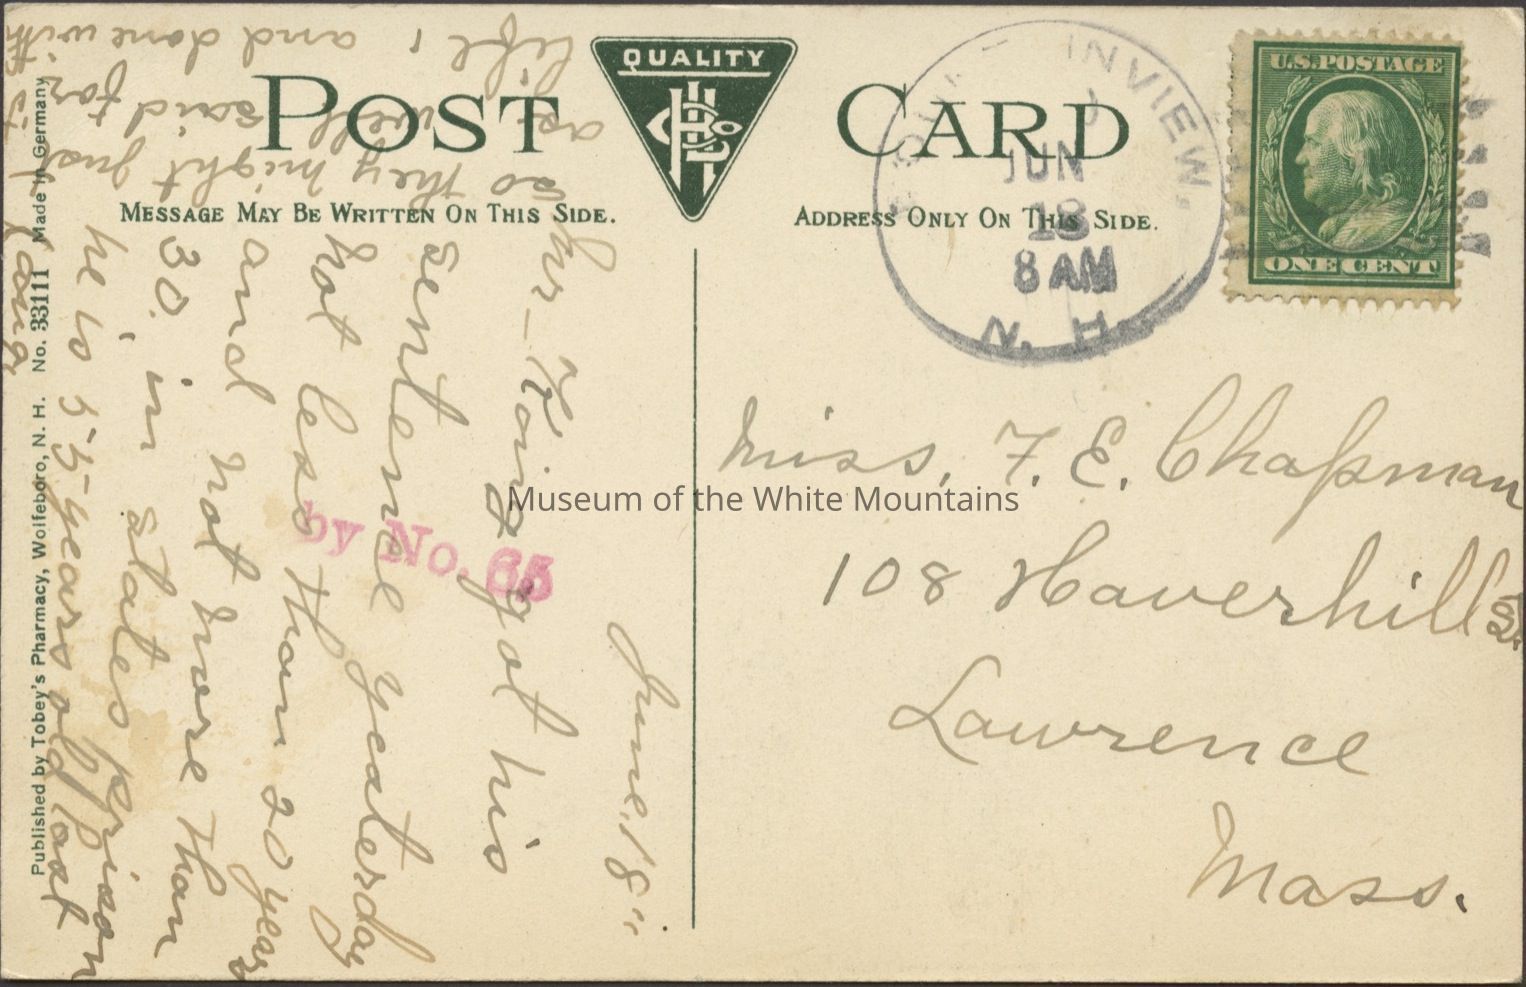 POST CARD
QUALITY
MESSAGE MAY BE WRITTEN ON THIS SIDE.
ADDRESS ONLY ON THIS SIDE.
U.S. POSTAGE
ONE CENT
INVIEW,
JUN
18
8 AM
N. H.
Miss. F. E. Chapman
108 Haverhill St.
Lawrence
Mass.
June, 18"
Mr - King got his
sentence yesterday
not less than 20 years
and not more than
30. in states prison
he is 55 years old last
so they might just
as well said for
life, and done with
it
by No. 65
Published by Tobey's Pharmacy, Wolfeboro, N. H. No. 33111 Made in Germany
Museum of the White Mountains